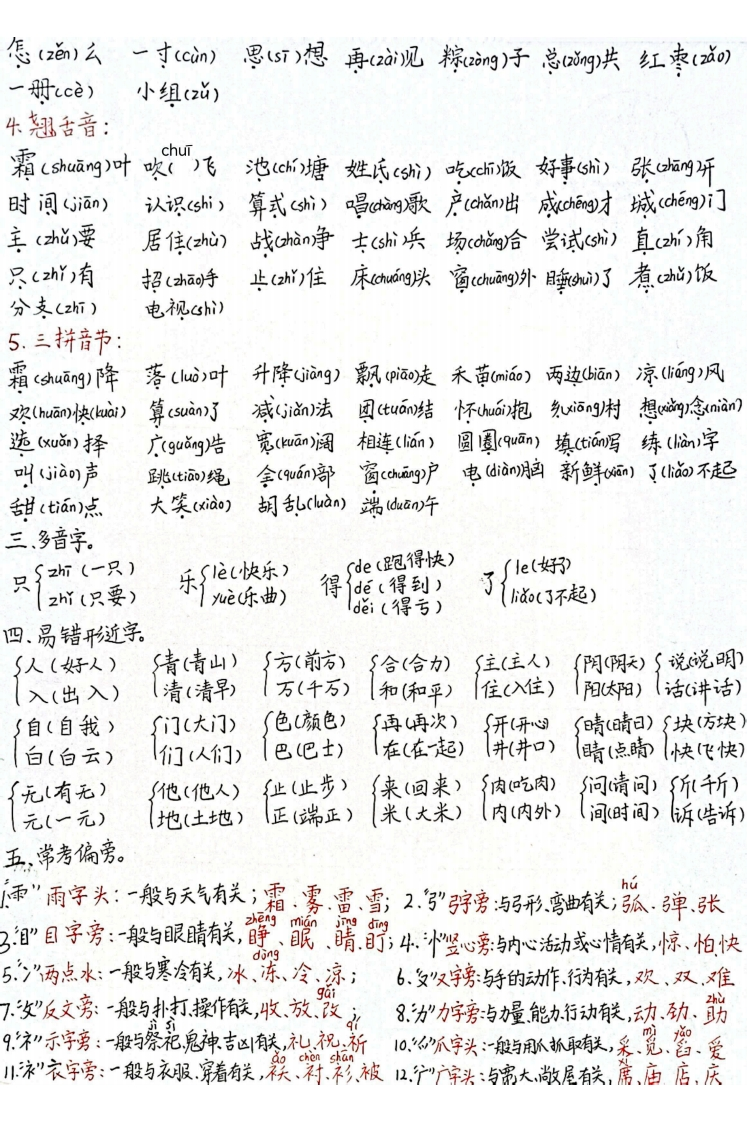 怎(zěn)么 一寸(cùn) 思(sī)想 再(zài)见 粽(zòng)子 总(zǒng)共 红枣(zǎo)
一册(cè) 小组(zǔ)
4.翘舌音:
霜(shuāng)叶 吹(chuī)飞 池(chí)塘 姓氏(shì) 吃(chī)饭 好事(shì) 张(zhāng)开
时间(jiān) 认识(shi) 算式(shì) 唱(chàng)歌 产(chǎn)出 成(chéng)才 城(chéng)门
主(zhǔ)要 居住(zhù) 战(zhàn)争 士(shì)兵 场(chǎng)合 尝试(shì) 直(zhí)角
只(zhǐ)有 招(zhāo)手 止(zhǐ)住 床(chuáng)头 窗(chuāng)外 睡(shuì)了 煮(zhǔ)饭
分支(zhī) 电视(shì)
5.三拼音节:
霜(shuāng)降 落(luò)叶 升降(jiàng) 飘(piāo)走 禾苗(miáo) 两边(biān) 凉(liáng)风
欢(huān)快(kuài) 算(suàn)了 减(jiǎn)法 团(tuán)结 怀(huái)抱 乡(xiāng)村 想(xiǎng)念(niàn)
选(xuǎn)择 广(guǎng)告 宽(kuān)阔 相连(lián) 圆圈(quān) 填(tián)写 练(liàn)字
叫(jiào)声 跳(tiào)绳 全(quán)部 窗(chuāng)户 电(diàn)脑 新鲜(xiān) 了(liǎo)不起
甜(tián)点 大笑(xiào) 胡乱(luàn) 端(duān)午
三、多音字。
只{zhī(一只) 乐{lè(快乐) 得{de(跑得快) 了{le(好了)
zhǐ(只要) yuè(乐曲) dé(得到) liǎo(了不起)
děi(得亏)
四、易错形近字。
{人(好人) {青(青山) {方(前方) {合(合力) {主(主人) {阴(阴天) {说(说明)
入(出入) 清(清早) 万(千万) 和(和平) 住(入住) 阳(太阳) 话(讲话)
{自(自我) {门(大门) {色(颜色) {再(再次) {开(开心) {晴(晴日) {块(方块)
白(白云) 们(人们) 巴(巴士) 在(在一起) 井(井口) 睛(点睛) 快(飞快)
{无(有无) {他(他人) {止(止步) {来(回来) {肉(吃肉) {问(请问) {斤(千斤)
元(一元) 地(土地) 正(端正) 米(大米) 内(内外) 间(时间) 诉(告诉)
五、常考偏旁。
1."⻗"雨字头:一般与天气有关;霜、雾、雷、雪; 2."弓"弓字旁:与弓形、弯曲有关;弧(hú)、弹、张
3."目"目字旁:一般与眼睛有关,睁(zhēng)、眠(mián)、睛(jīng)、盯(dīng); 4."忄"竖心旁:与内心活动或心情有关,惊、怕、快
5."冫"两点水:一般与寒冷有关,冰、冻(dòng)、冷、凉; 6."又"又字旁:与手的动作、行为有关,欢、双、难
7."攵"反文旁:一般与扑打、操作有关,收、放、改(gǎi); 8."力"力字旁:与力量、能力、行动有关,动、劲、助(zhù)
9."礻"示字旁:一般与祭(jì)祀(sì)、鬼神、吉凶有关,礼、祝、祈(qí) 10."爫"爪字头:一般与用爪抓取有关,采、觅(mì)、舀(yǎo)、爱
11."衤"衣字旁:一般与衣服、穿着有关,袄(ǎo)、衬(chèn)、衫(shān)、被 12."广"广字头:与宽大、敞屋有关,席、庙、店、庆